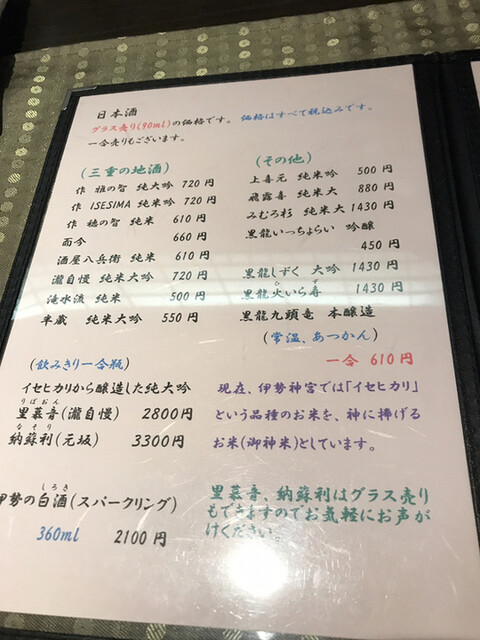 日本酒
グラス売り(90ml)の価格です。 価格はすべて税込みです。
一合売りもございます。
(三重の地酒)
作 雅の智 純大吟 720円
作 ISESIMA 純米吟 720円
作 穂の智 純米 610円
而今 660円
酒屋八兵衛 純米 610円
瀧自慢 純米大吟 720円
滝水流 純米 500円
半蔵 純米大吟 550円
(その他)
上喜元 純米吟 500円
飛露喜 純米大 880円
みむろ杉 純米大 1430円
黒龍いっちょらい 吟醸
450円
黒龍しずく 大吟 1430円
黒龍火いら寿 1430円
ひ ず
黒龍九頭竜 本醸造
(常温、あつかん)
一合 610円
(飲みきり一合瓶)
イセヒカリから醸造した純大吟
りぼおん
里慕音(瀧自慢) 2800円
なそり
納蘇利(元坂) 3300円
現在、伊勢神宮では「イセヒカリ」
という品種のお米を、神に捧げる
お米(御神米)としています。
しろき
伊勢の白酒(スパークリング)
360ml 2100円
里慕音、納蘇利はグラス売り
もできますのでお気軽にお声が
けください。